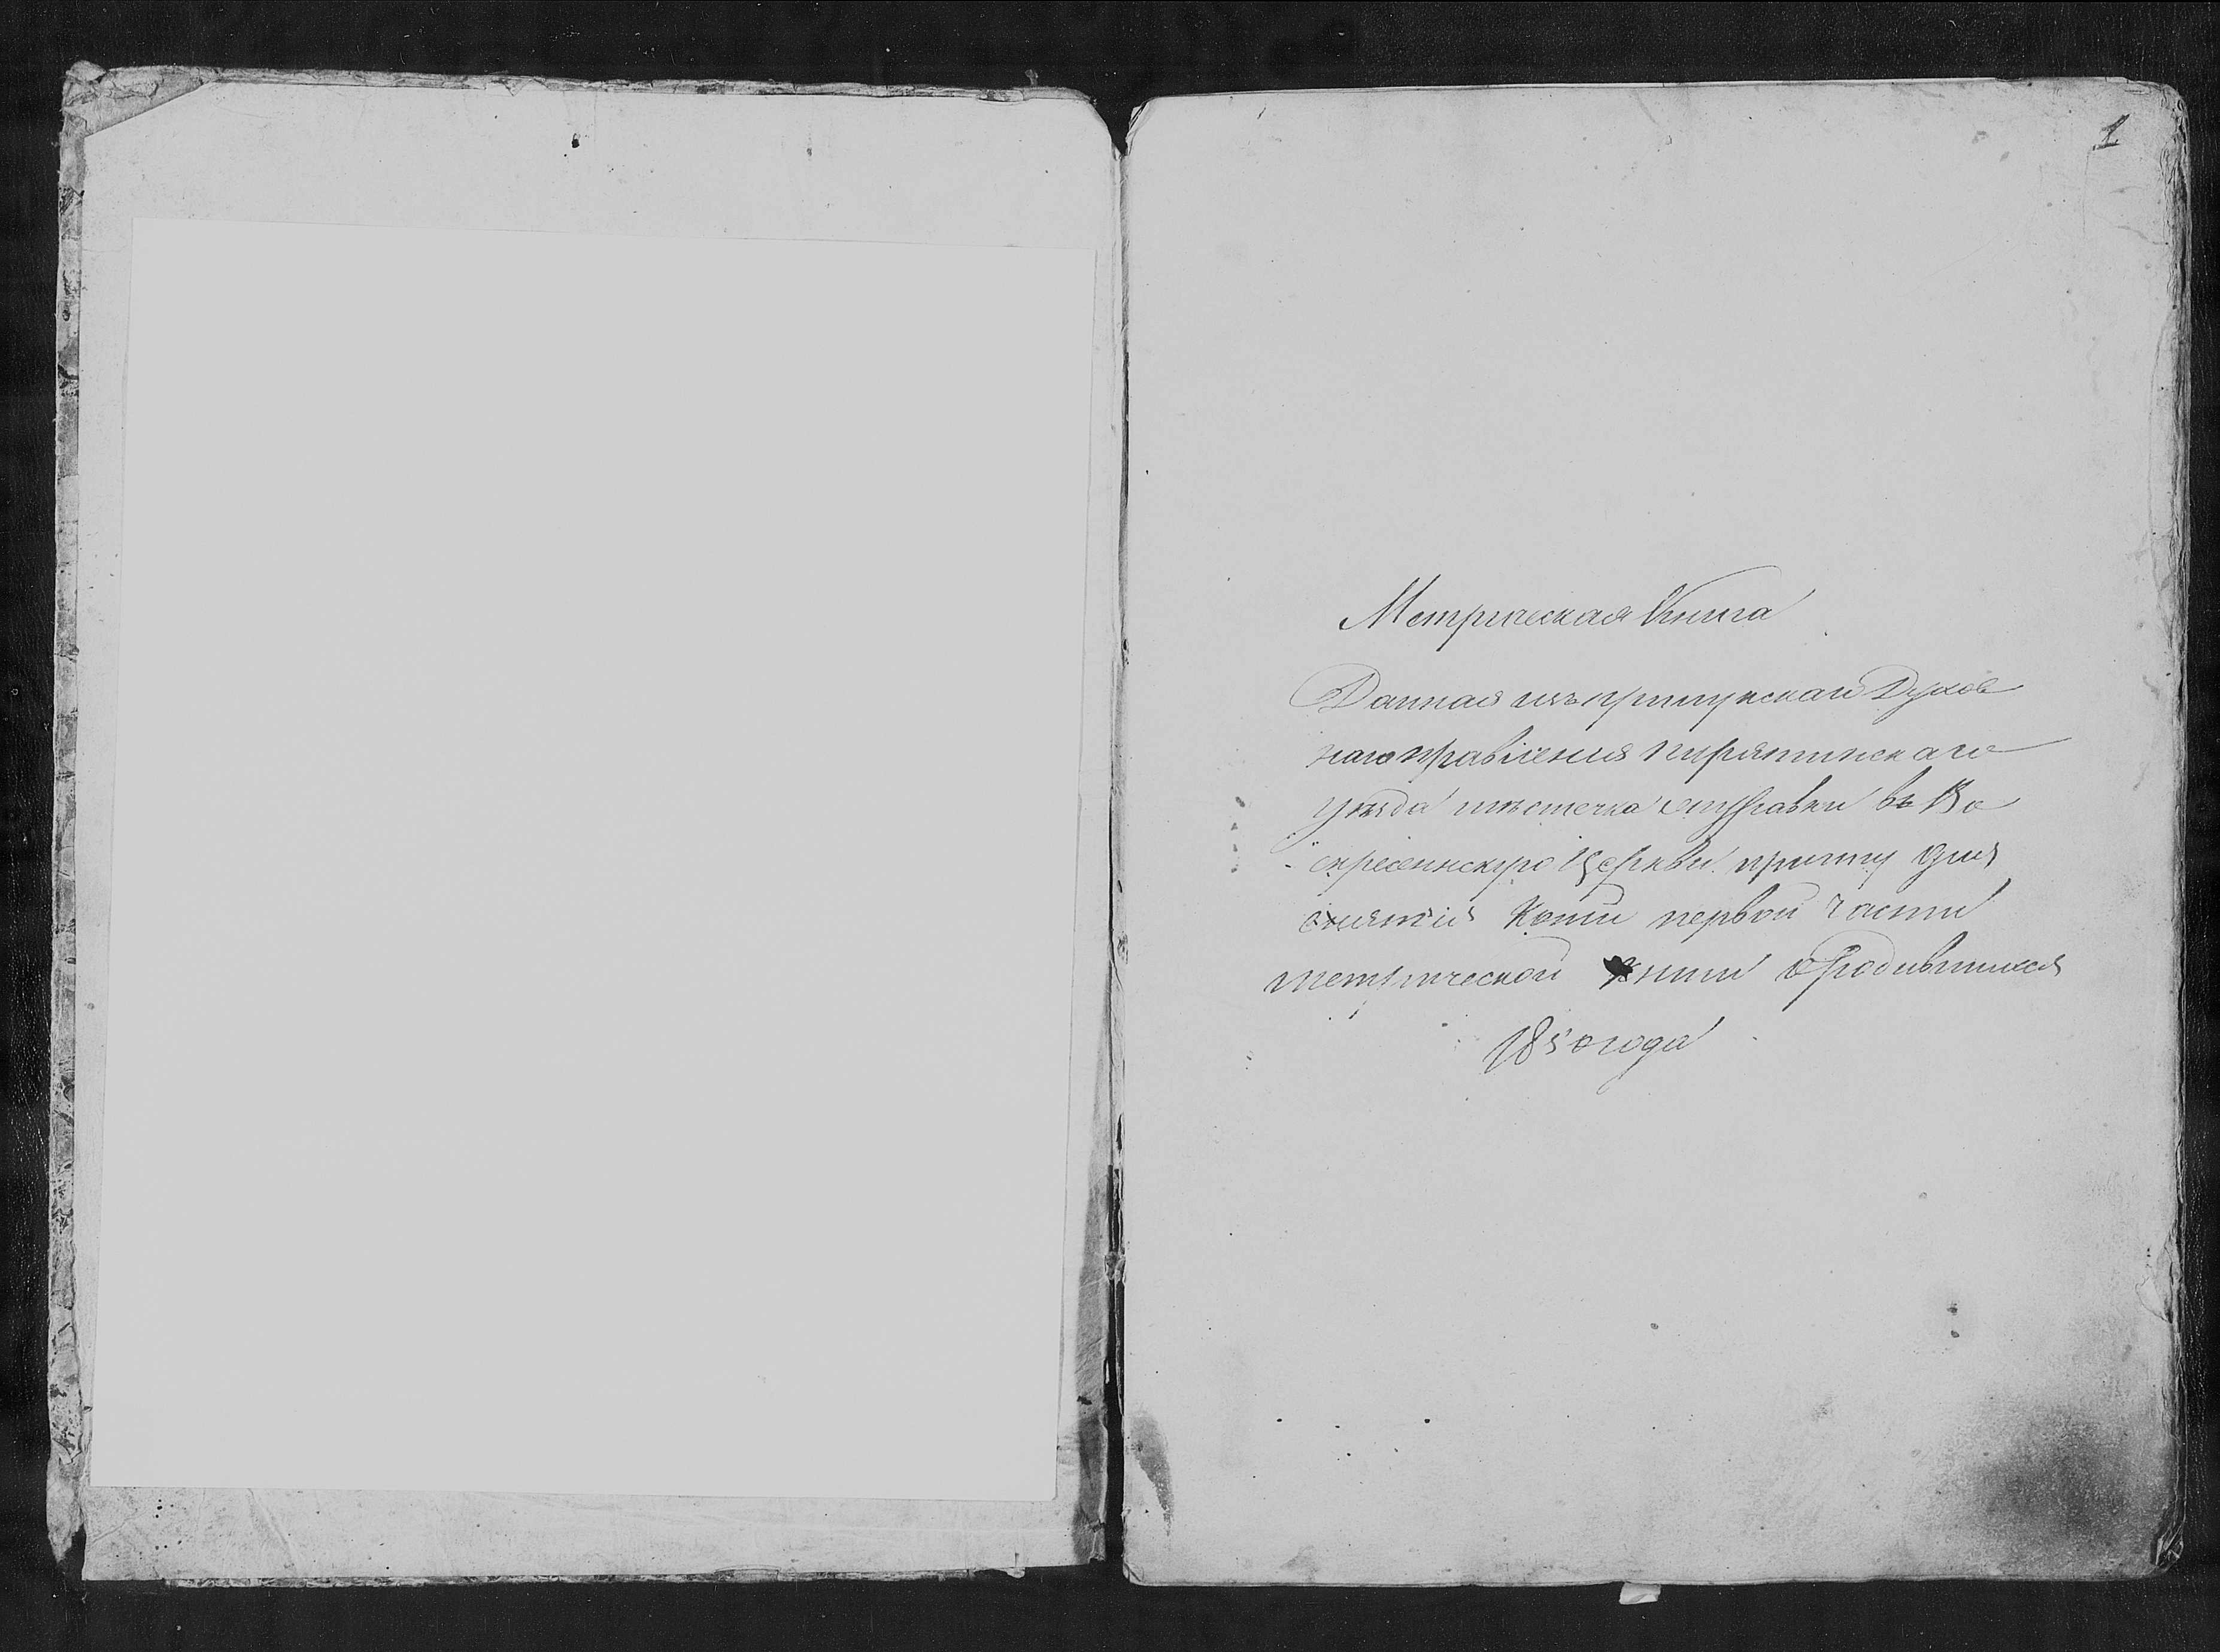 1
Метрическая Книга
Данная изъ прилукскаго Духов
наго правления пирятинскаго
уезда местечка журавки въ Во
скресенскую Церковь причту для
снятия Копіи первой Части
метрической книги о родившихся
1850 года